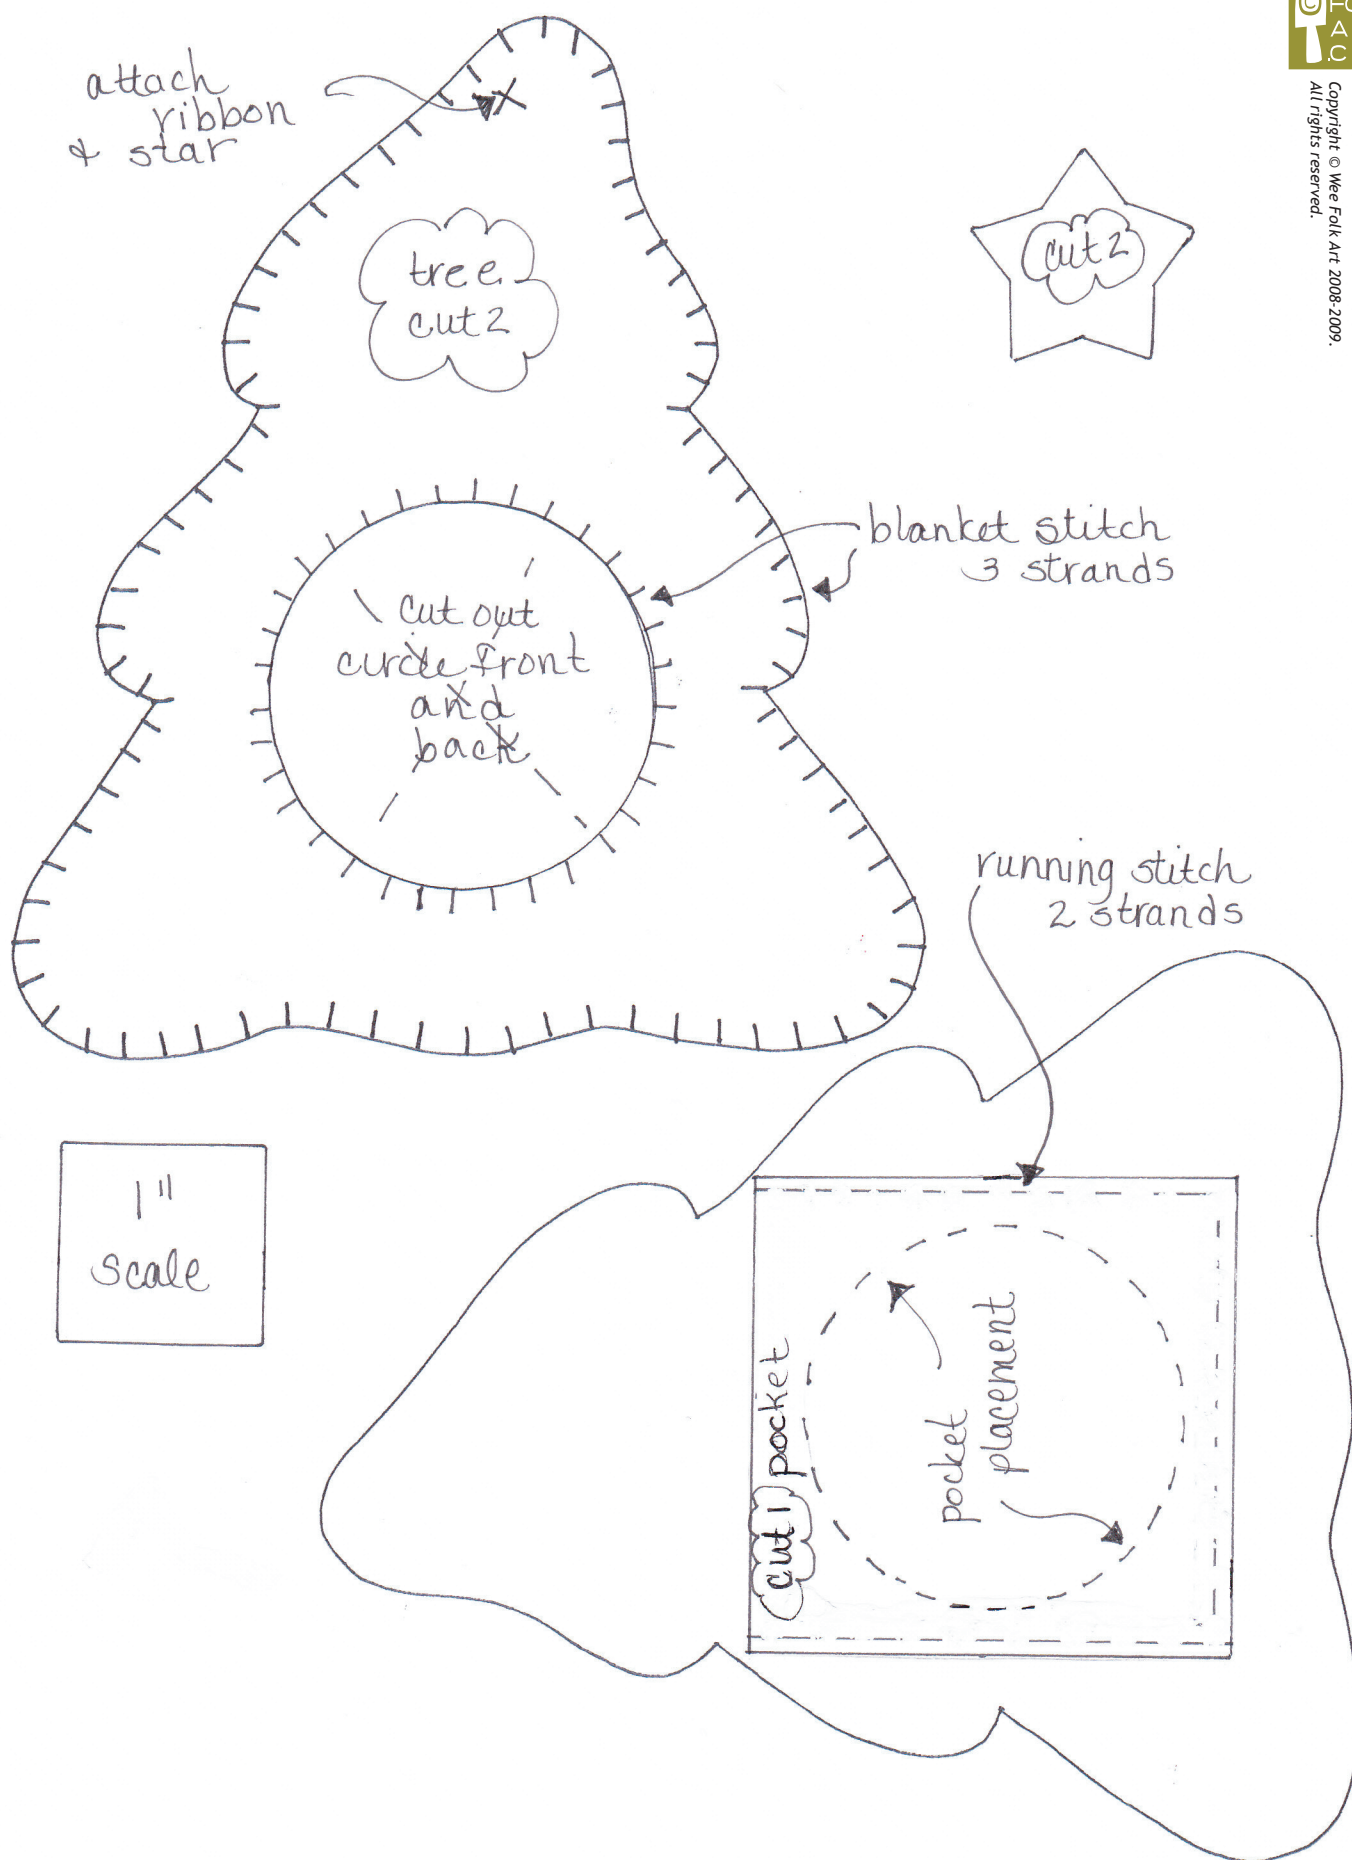 attach
ribbon
& star
tree
cut 2
cut 2
Copyright © Wee Folk Art 2008-2009.
All rights reserved.
blanket stitch
3 strands
cut out
circle front
and
back
running stitch
2 strands
1"
scale
cut 1 pocket
pocket
placement